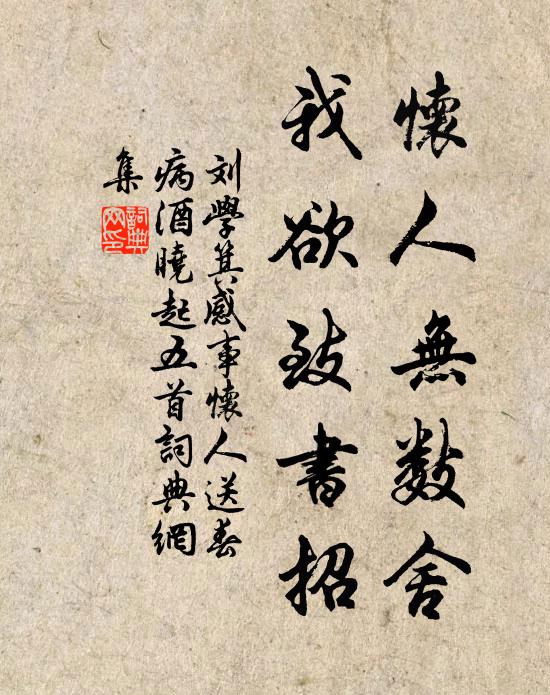 懷人無數舍
我欲致書招
刘學箕感事懷人送春
病酒曉起五首詞典網
集
詞典
网印